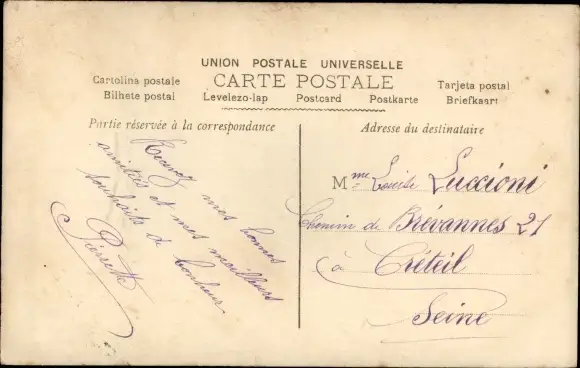 UNION POSTALE UNIVERSELLE
CARTE POSTALE
Cartolina postale
Tarjeta postal
Bilhete postal
Levelezo-lap
Postcard
Postkarte
Briefkaart
Partie réservée à la correspondance
Recevez mes bonnes
amitiés et mes meilleurs
souhaits de bonheur
Pierrette
Adresse du destinataire
Mme Louise Luccioni
Chemin de Brévannes 21
à Créteil
Seine